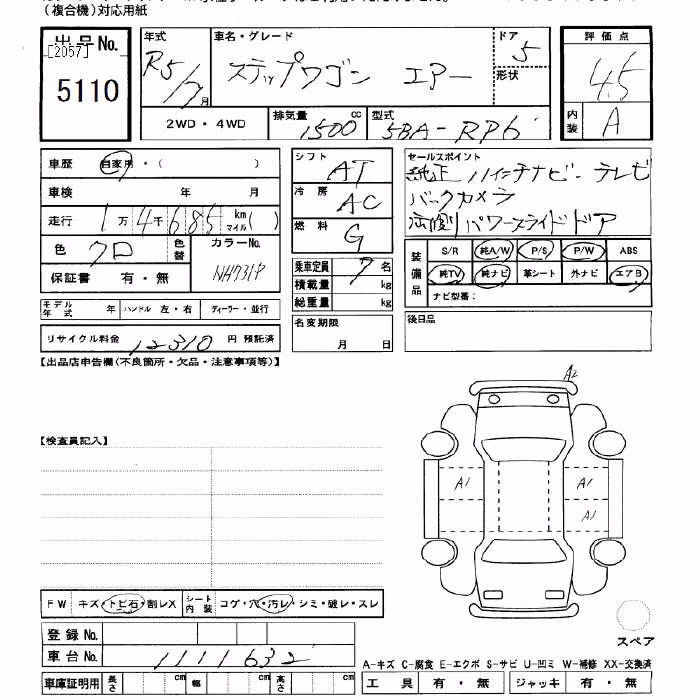 (複合機)対応用紙
出品No. [2057] 5110
年式 R5/7月
車名・グレード ステップワゴン エアー
ドア 5
形状
評価点 4.5
内装 A
2WD・4WD
排気量 1500 cc
型式 5BA-RP6
車歴 自家用・( )
車検 年 月
走行 1万4千685 km マイル( )
色 クロ 色替 カラーNo. NH731P
保証書 有・無
シフト AT
冷房 AC
燃料 G
乗車定員 7名
積載量 kg
総重量 kg
セールスポイント
純正 ナビ テレビ
バックカメラ
両側パワースライドドア
装備品 S/R 純A/W P/S P/W ABS
純TV 純ナビ 革シート 外ナビ エアB
ナビ型番:
モデル年式 年 ハンドル 左・右 ディーラー・並行
名変期限 月 日
後日品
リサイクル料金 12310 円 預託済
【出品店申告欄(不良箇所・欠品・注意事項等)】
A2
【検査員記入】
A1 A1
A1
FW キズ・トビ石・割レX シート内装 コゲ・穴・汚レ・シミ・破レ・スレ
スペア
登録No.
車台No. 1111632
A-キズ C-腐食 E-エクボ S-サビ U-凹ミ W-補修 XX-交換済
車庫証明用 長さ cm 幅 cm 高さ cm
工具 有・無 ジャッキ 有・無